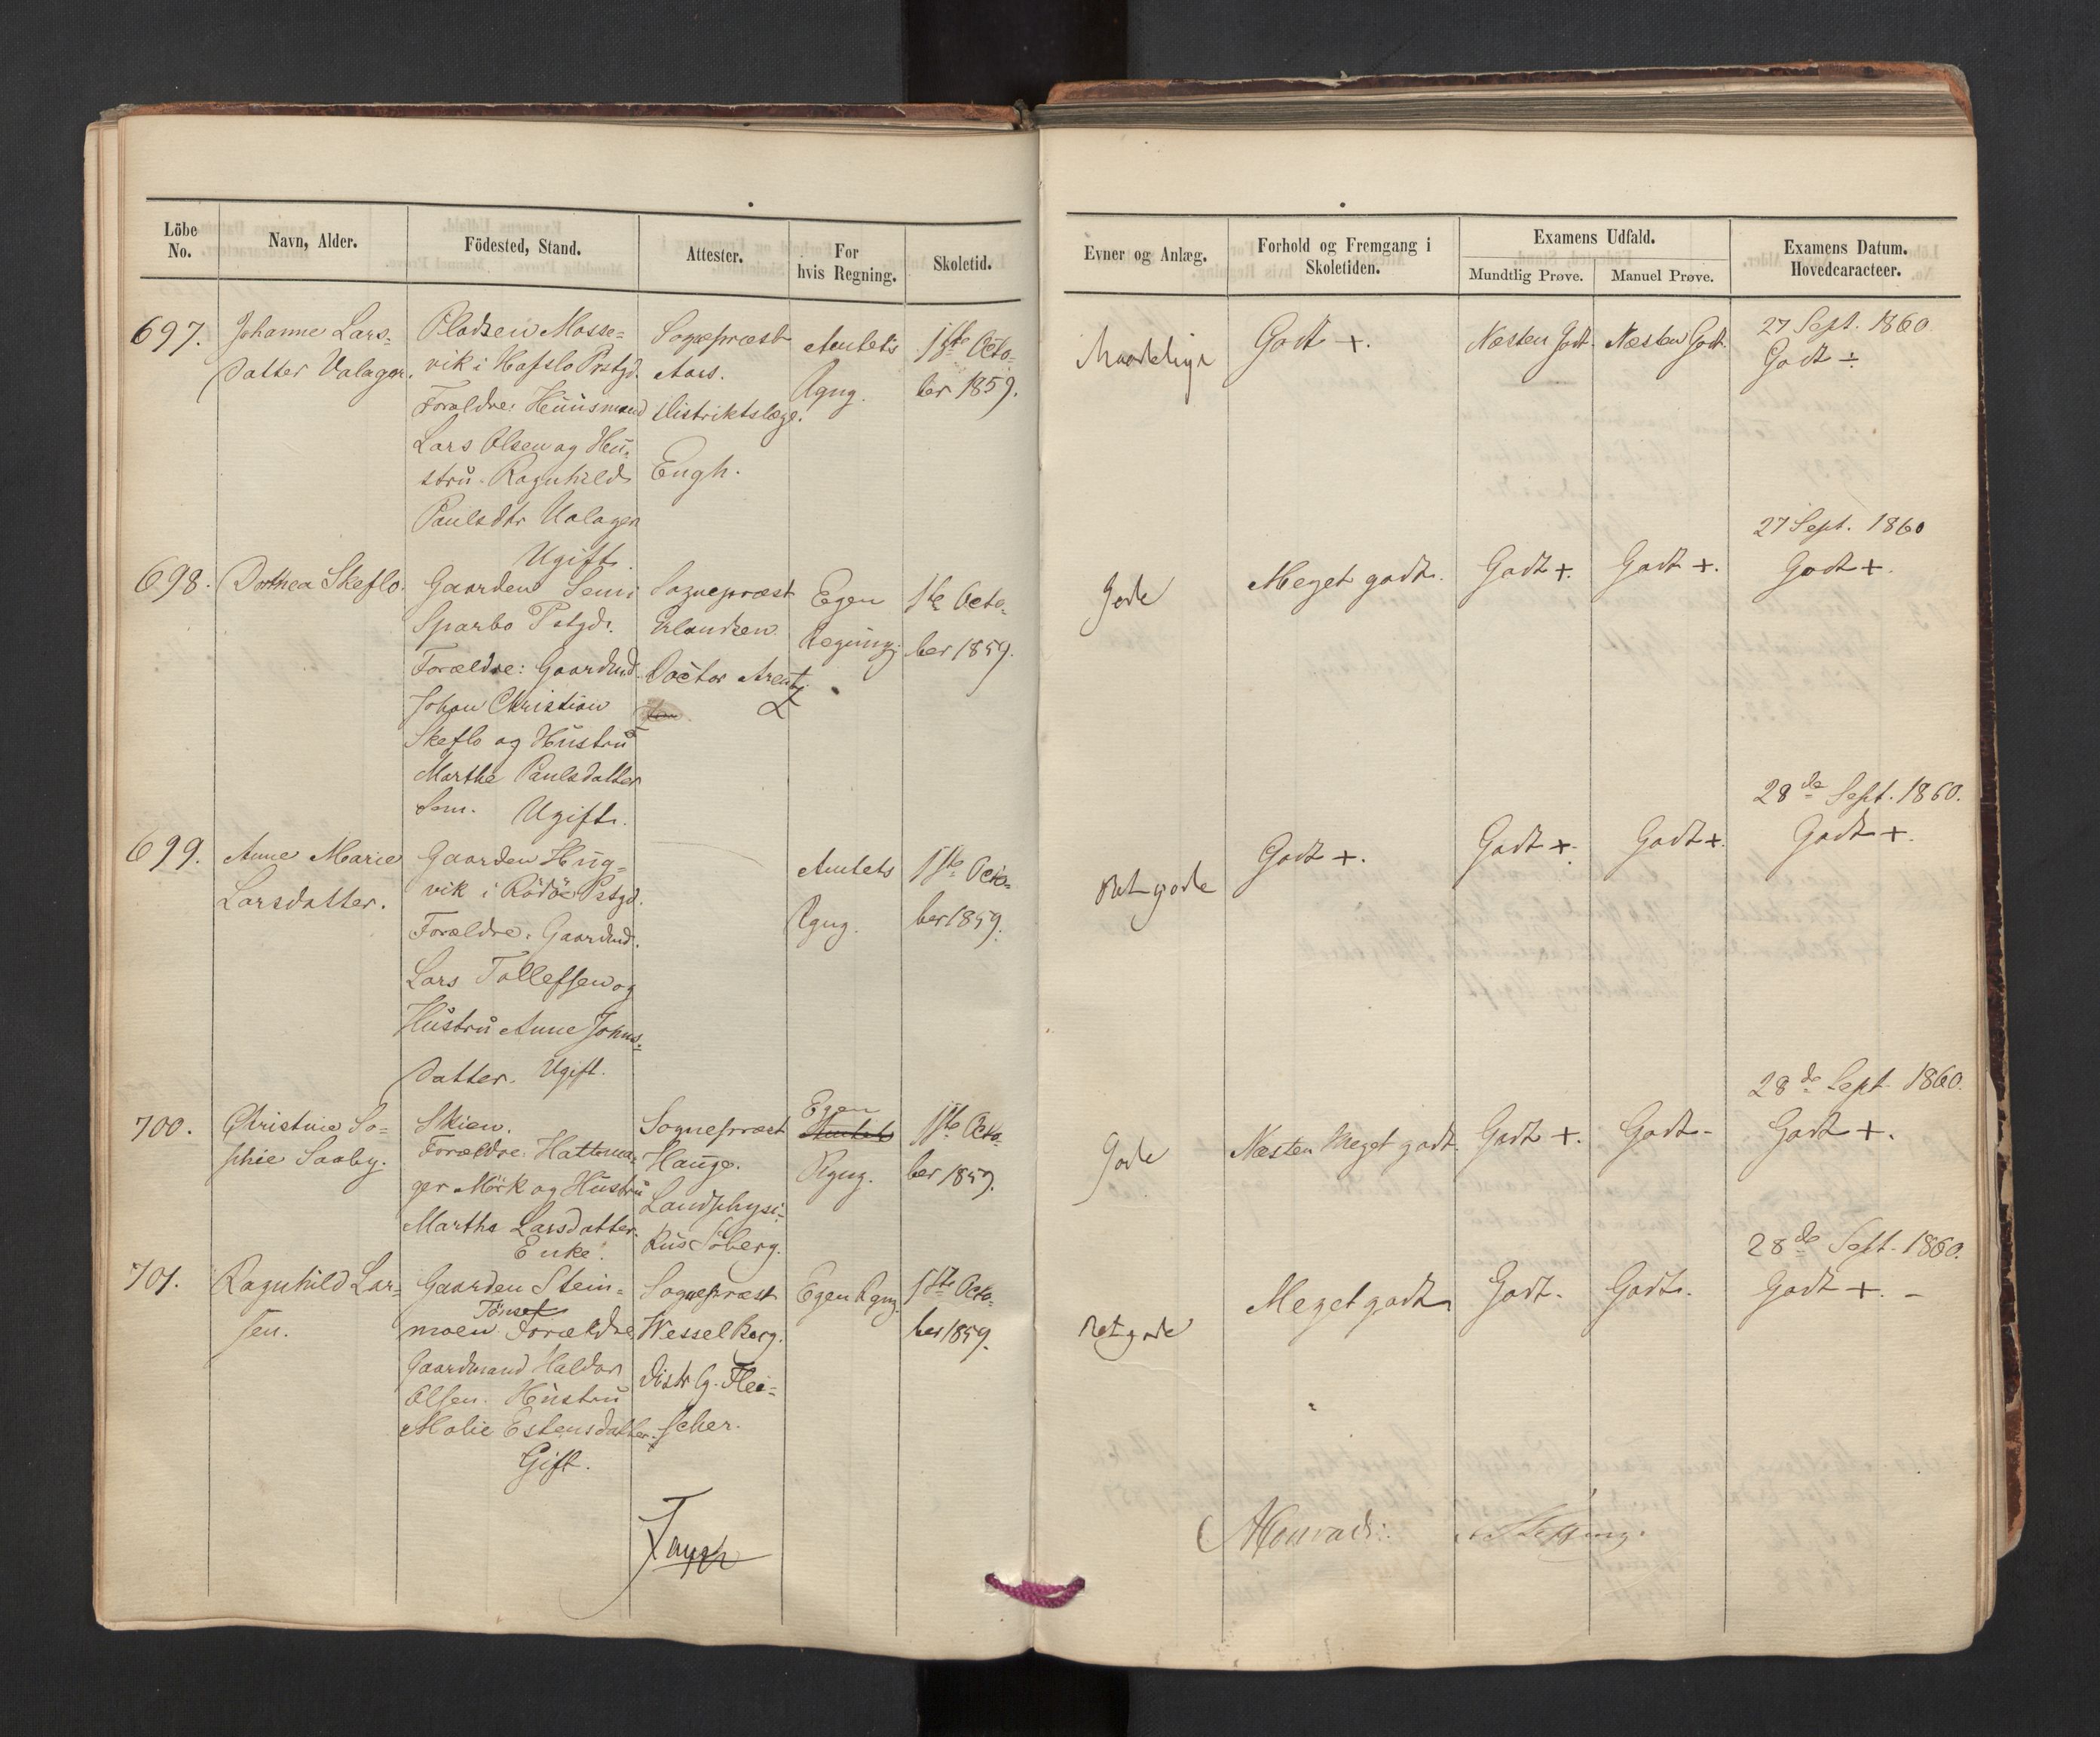 Löbe No.
Navn, Alder.
Födested, Stand.
Attester.
For hvis Regning.
Skoletid.
Evner og Anlæg.
Forhold og Fremgang i Skoletiden.
Examens Udfald.
Mundtlig Prøve.
Manuel Prøve.
Examens Datum. Hovedcaracteer.
697.
Johanne Lars-
datter Valagen.
Pladsen Mosse-
vik i Hafslo Prstgd.
Forældre: Huusmand
Lars Olsen og Hu-
stru Ragnhild
Paulsdtr Valagen
Ugift.
Sognepræst
Aars.
Distriktslæge
Engh.
Amtets
Rgng.
1ste Octo-
ber 1859.
Maadelige
Godt +.
Næsten Godt.
Næsten Godt.
27 Sept. 1860.
Godt ÷
698.
Dorthea Skeflo.
Gaarden Sem i
Sparbo Pstgd.
Forældre: Gaardmd.
Johan Christian
Skeflo og Hustru
Marthe Paulsdatter
Sem. Ugift.
Sognepræst
Erlandsen
Doctor Arentz.
Egen
Regning.
1ste Octo-
ber 1859.
Gode
Meget godt.
Godt +.
Godt +.
27 Sept. 1860
Godt +.
699.
Anne Marie
Larsdatter.
Gaarden Hug-
vik i Rödöe Pstgd.
Forældre: Gaardmd.
Lars Tollefsen og
Hustru Anne Johns-
datter. Ugift.
Amtets
Rgng.
1ste Octo-
ber 1859.
Ret gode
Godt +.
Godt +.
Godt +.
28de Sept. 1860.
Godt +.
700.
Christine So-
phie Saaby.
Skien.
Forældre: Hattema-
ger Mörk og Hustru
Marthe Larsdatter.
Enke.
Sognepræst
Hauge.
Landphysi-
kus Söberg.
Egen
Amtets
Rgng.
1ste Octo-
ber 1859.
Gode
Næsten Meget godt.
Godt +.
Godt -
28de Sept. 1860.
Godt +.
701.
Ragnhild Lar-
sen.
Gaarden Stein-
Tönset
moen. Forældre
Gaardmand Haldor
Olsen. Hustru
Malie Estensdatter.
Gift.
Sognepræst
Wessel Berg.
Distr C. Flei-
scher.
Egen Rgng.
1ste Octo-
ber 1859.
Ret gode
Meget godt
Godt.
Godt.
28de Sept. 1860.
Godt +. -
Faye
Monrad.